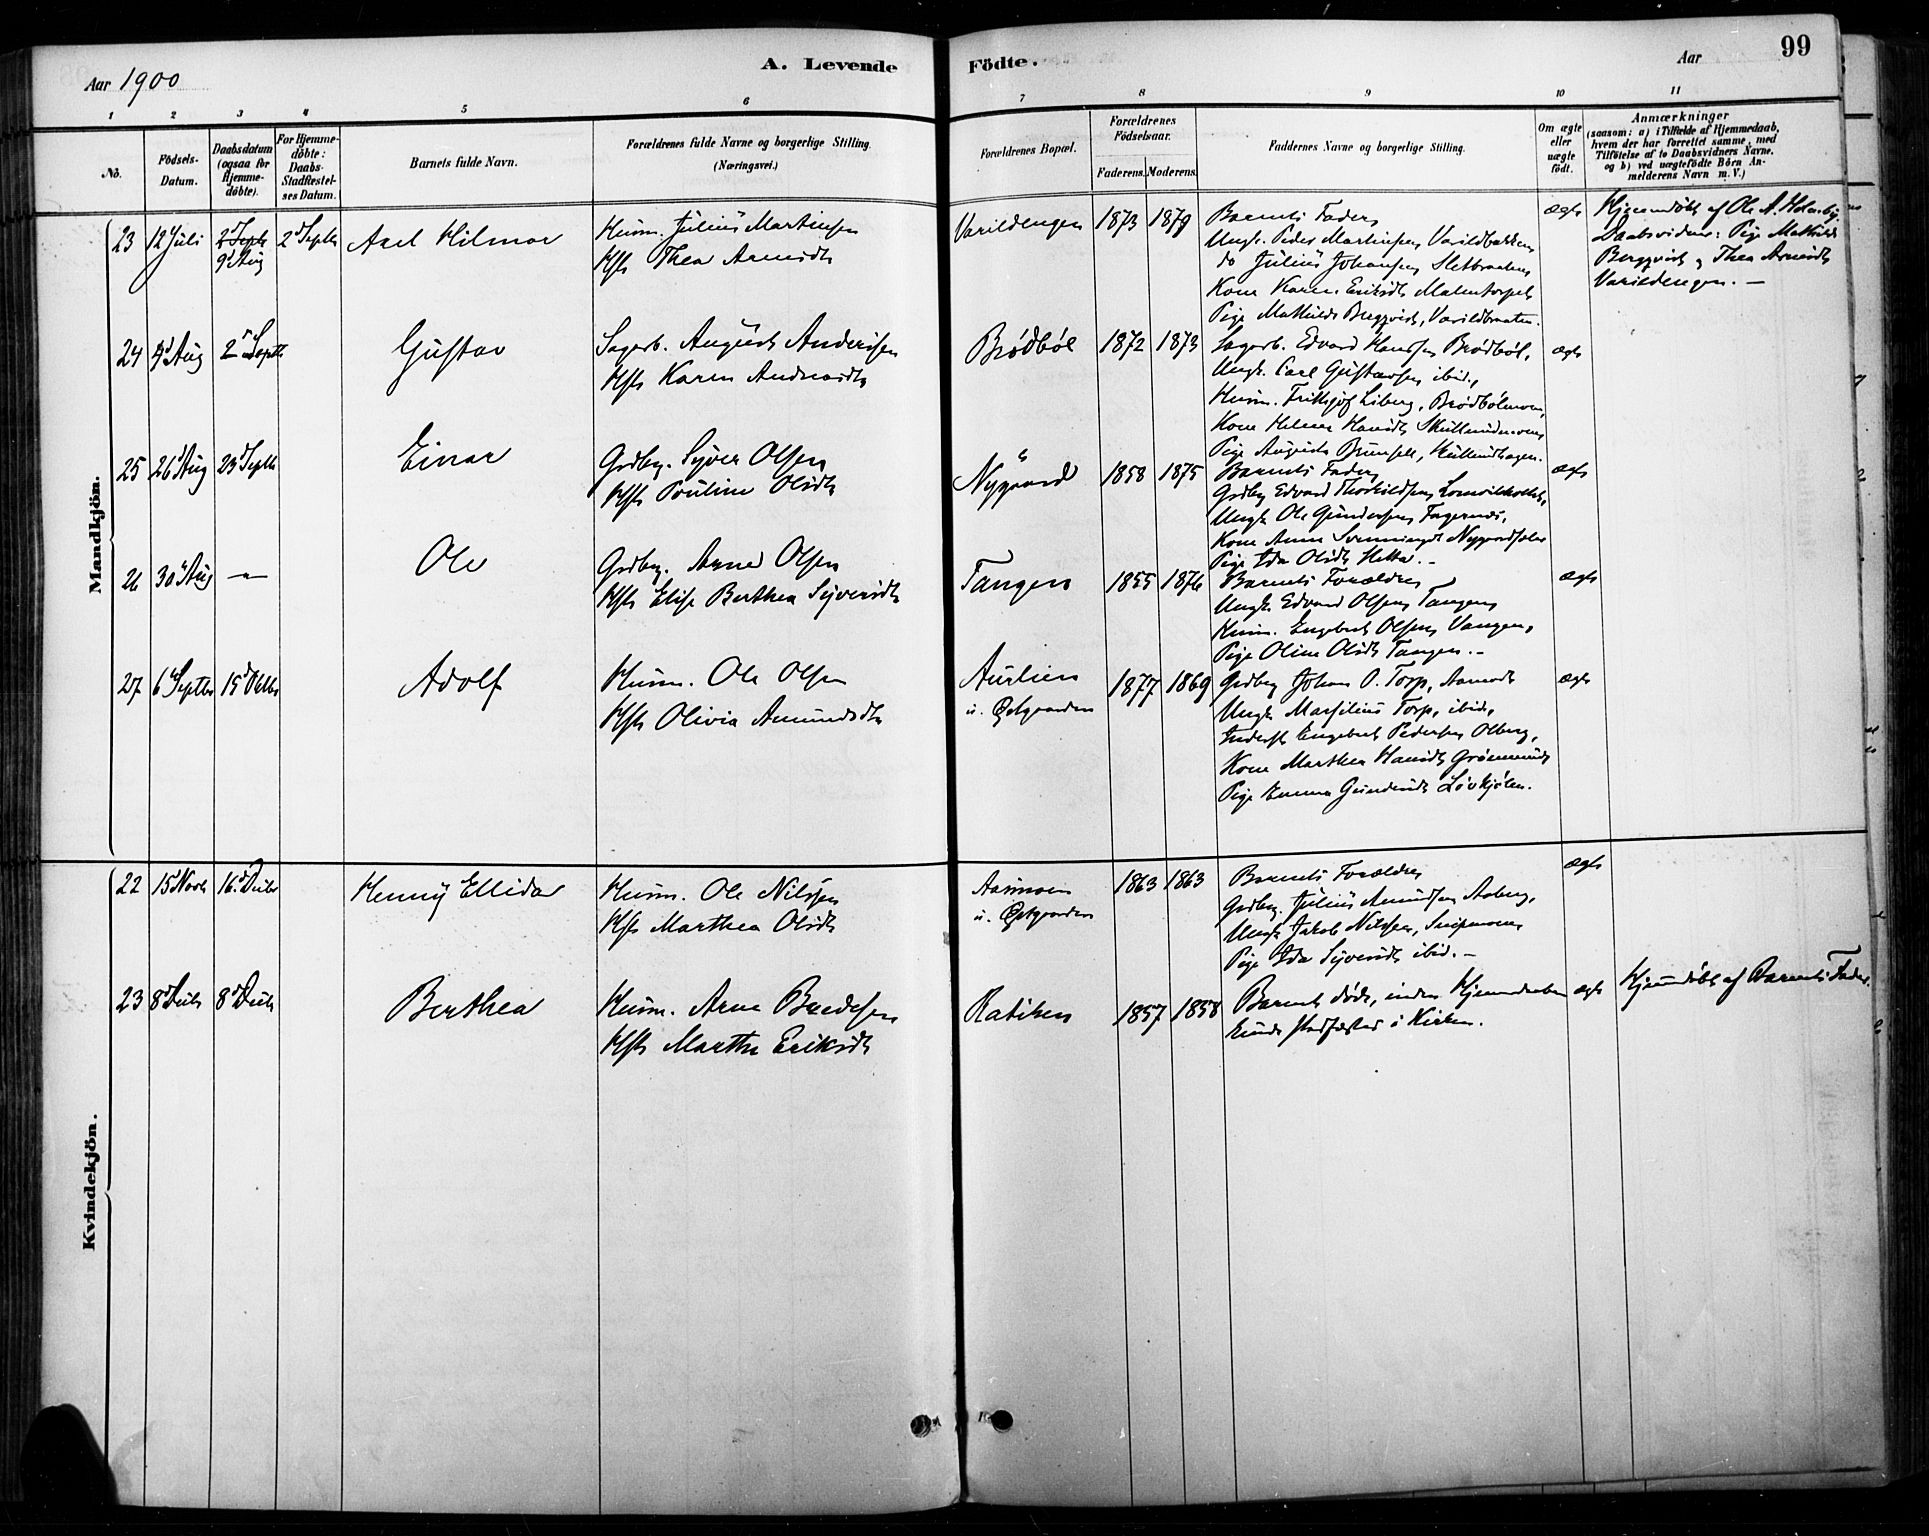 Aar 1900
A. Levende
Födte.
Aar
99
1 2 3 4 5 6 7 8 9 10 11
No.
Födsels-
Datum.
Daabsdatum
(ogsaa for
Hjemme-
döbte).
For Hjemme-
döbte:
Daabs-
Stadfæstel-
ses Datum.
Barnets fulde Navn.
Forældrenes fulde Navne og borgerlige Stilling.
(Næringsvei.)
Forældrenes Bopæl.
Forældrenes
Födselsaar.
Faderens.
Moderens.
Faddernes Navne og borgerlige Stilling.
Om ægte
eller
uægte
födt.
Anmærkninger
(saasom: a) i Tilfælde af Hjemmedaab,
hvem der har forrettet samme, med
Tilföielse af to Daabsvidners Navne.
og b) ved uægtefödte Börn An-
melderens Navn m. V.)
Mandkjön.
23
12 Juli
2 Septb
9 Aug
2 Septb
Axel Hilmar
Husm. Julius Martinsen
Hst. Thea Arnesdtr
Varildengen
1873
1879
Barnets Fader,
Ungk. Peder Martinsen, Varildbakken
do Julius Johansen Sletbraaten
Kone Karen Eriksdtr Malentorpet
Pige Mathilde Bergqvist, Varildbraaten.
ægte
Hjemmedöbt af Ole A. Holmby.
Daabsvidner: Pige Mathilde
Bergqvist og Thea Arnesdtr
Varildengen. —
24
4 Aug
2 Septb
Gustav
Sagarb. August Andersen
Hst. Karen Andersdtr
Brødbøl
1872
1873
Sagarb. Edvard Hanssen Brødbøl,
Ungk. Carl Gustavsen ibid.,
Husm. Frithjof Liberg, Brødbølmoen,
Kone Helene Hansdtr
Pige Augusta
ægte
25
26 Aug
23 Septb
Einar
Grdbr. Syver Olsen
Hst. Pouline Olsdtr
Nygaard
1858
1875
Barnets Fader,
Grdbr Edvard Thorkildsen
Ungk. Ole Gundersen Fagernes,
Kone Anna Svenningsdtr
Pige Ida Olsdtr Hette. —
ægte
26
30 Aug
— " —
Ole
Grdbr. Arne Olsen
Hst. Elise Berthea Syversdtr
Tangen
1855
1876
Barnets Forældre,
Ungk. Edvard Olsen Tangen,
Husm. Engebret Olsen, Vangen,
Pige Oline Olsdtr Tangen. —
ægte
27
6 Septbr
15 Oktbr
Adolf
Husm. Ole Olsen
Hst. Olivia Amundsdtr
Aulien
u. Østgaarden
1877
1869
Grdbr Johan O. Torp, Aamodt
Ungk. Marsilius Torp, ibid.,
Inderst Engebret Pedersen Olberg,
Kone Marthea Hansdtr
Pige Emma Gundersdtr Løvhjølen.
ægte
Kvindekjön.
22
15 Novb
16 Decbr
Henny Ellida
Husm. Ole Nilssen
Hst. Marthea Olsdtr
Aasmoen
u. Østgaarden
1863
1863
Barnets Forældre
Grdbr. Julius Amundsen Aaberg,
Ungk Jakob Nilssen,
Pige Ida Syversdtr ibid. —
ægte
23
8 Decb
8 Decb
Berthea
Husm. Arne Bredesen
Hst. Marthe Eriksdtr
Ratiken
1857
1858
Barnet døde, inden Hjemmedaaben
kunde stadfæstes i Kirken.
ægte
Hjemmedöbt af Barnets Fader.